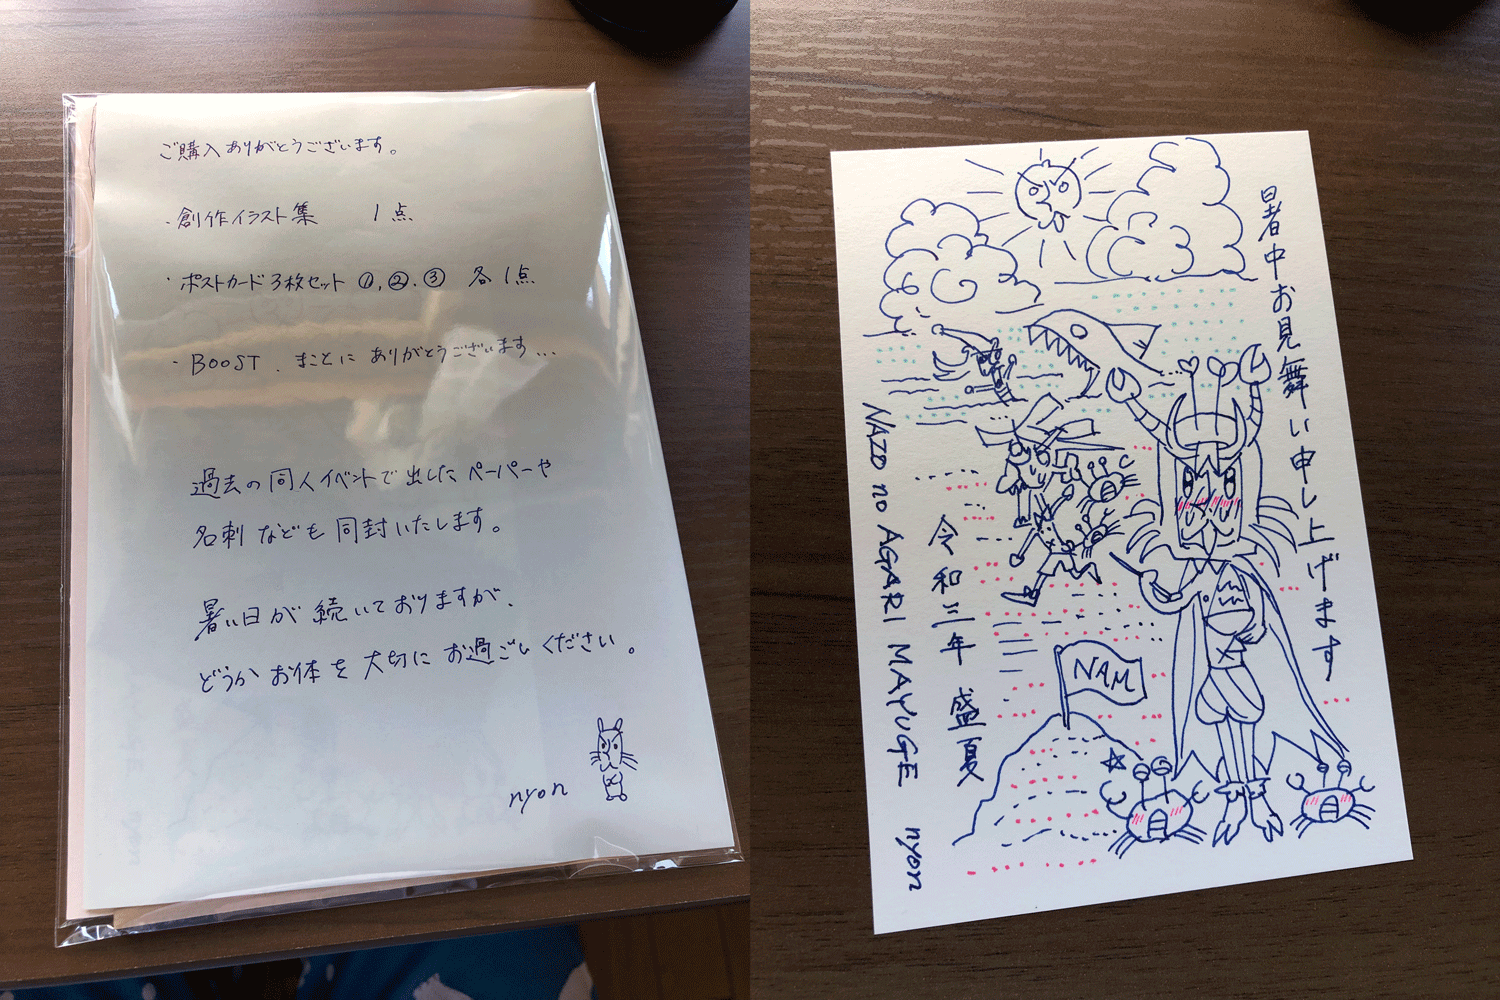 ご購入ありがとうございます。
・創作イラスト集 1点
・ポストカード3枚セット ①,②.③ 各1点
・BOOST、まことにありがとうございます…
過去の同人イベントで出したペーパーや
名刺なども同封いたします。
暑い日が続いておりますが、
どうかお体を大切にお過ごしください。
nyon
暑中お見舞い申し上げます
令和三年 盛夏
NAZO no AGARI MAYUGE nyon
NAM